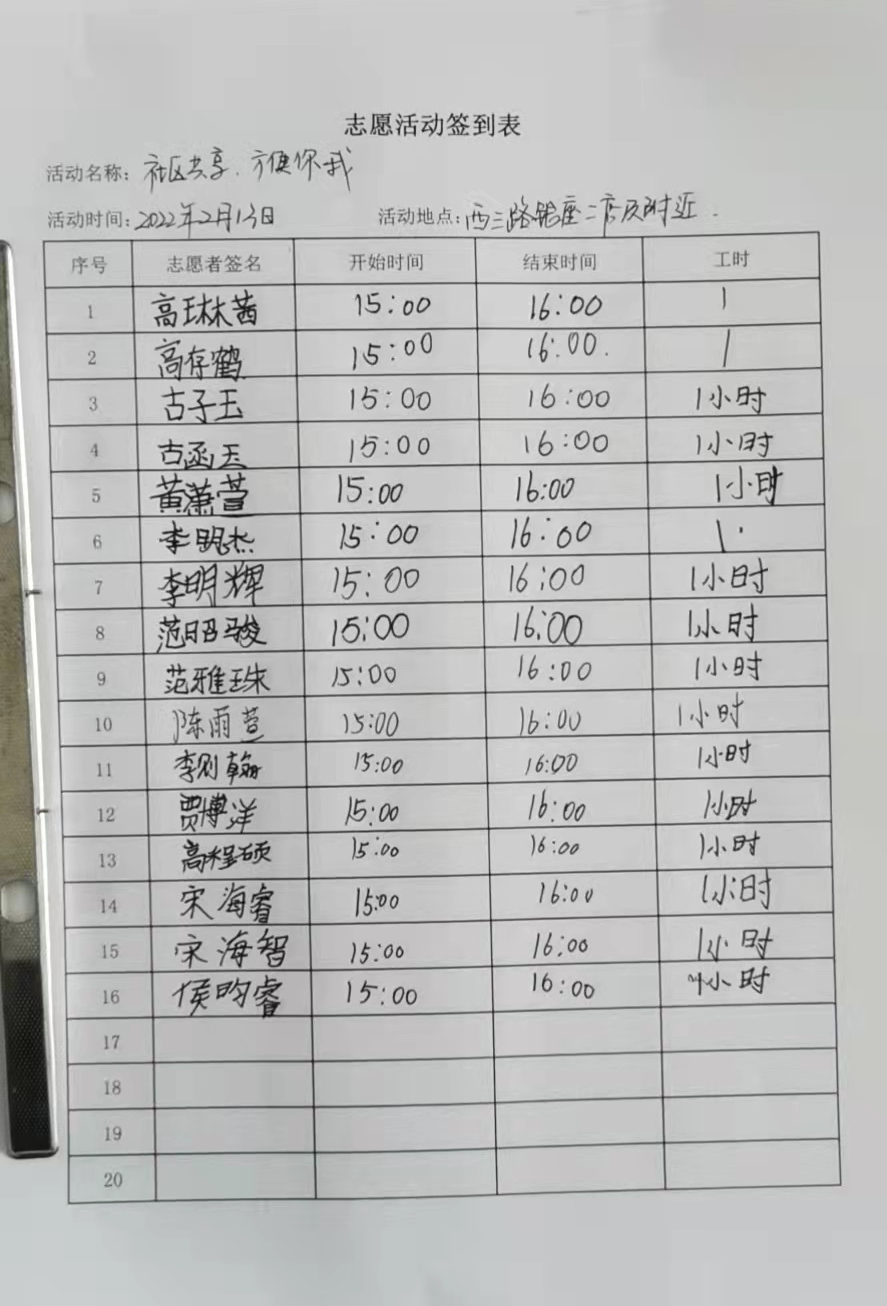 志愿活动签到表
活动名称：社区共享.方便你我
活动时间：2022年2月13日 活动地点：西三路銘座二店及附近.
序号 志愿者签名 开始时间 结束时间 工时
1 高琳茜 15:00 16:00 1
2 高存鹤 15:00 16:00. 1
3 古子玉 15:00 16:00 1小时
4 古函玉 15:00 16:00 1小时
5 黄萧萱 15:00 16:00 1小时
6 李明杰 15:00 16:00 1.
7 李明辉 15:00 16:00 1小时
8 范昭骏 15:00 16:00 1小时
9 范雅珠 15:00 16:00 1小时
10 陈雨萱 15:00 16:00 1小时
11 李则翰 15:00 16:00 1小时
12 贾博洋 15:00 16:00 1小时
13 高程硕 15:00 16:00 1小时
14 宋海睿 15:00 16:00 1小时
15 宋海智 15:00 16:00 1小时
16 侯昀睿 15:00 16:00 1小时
17
18
19
20